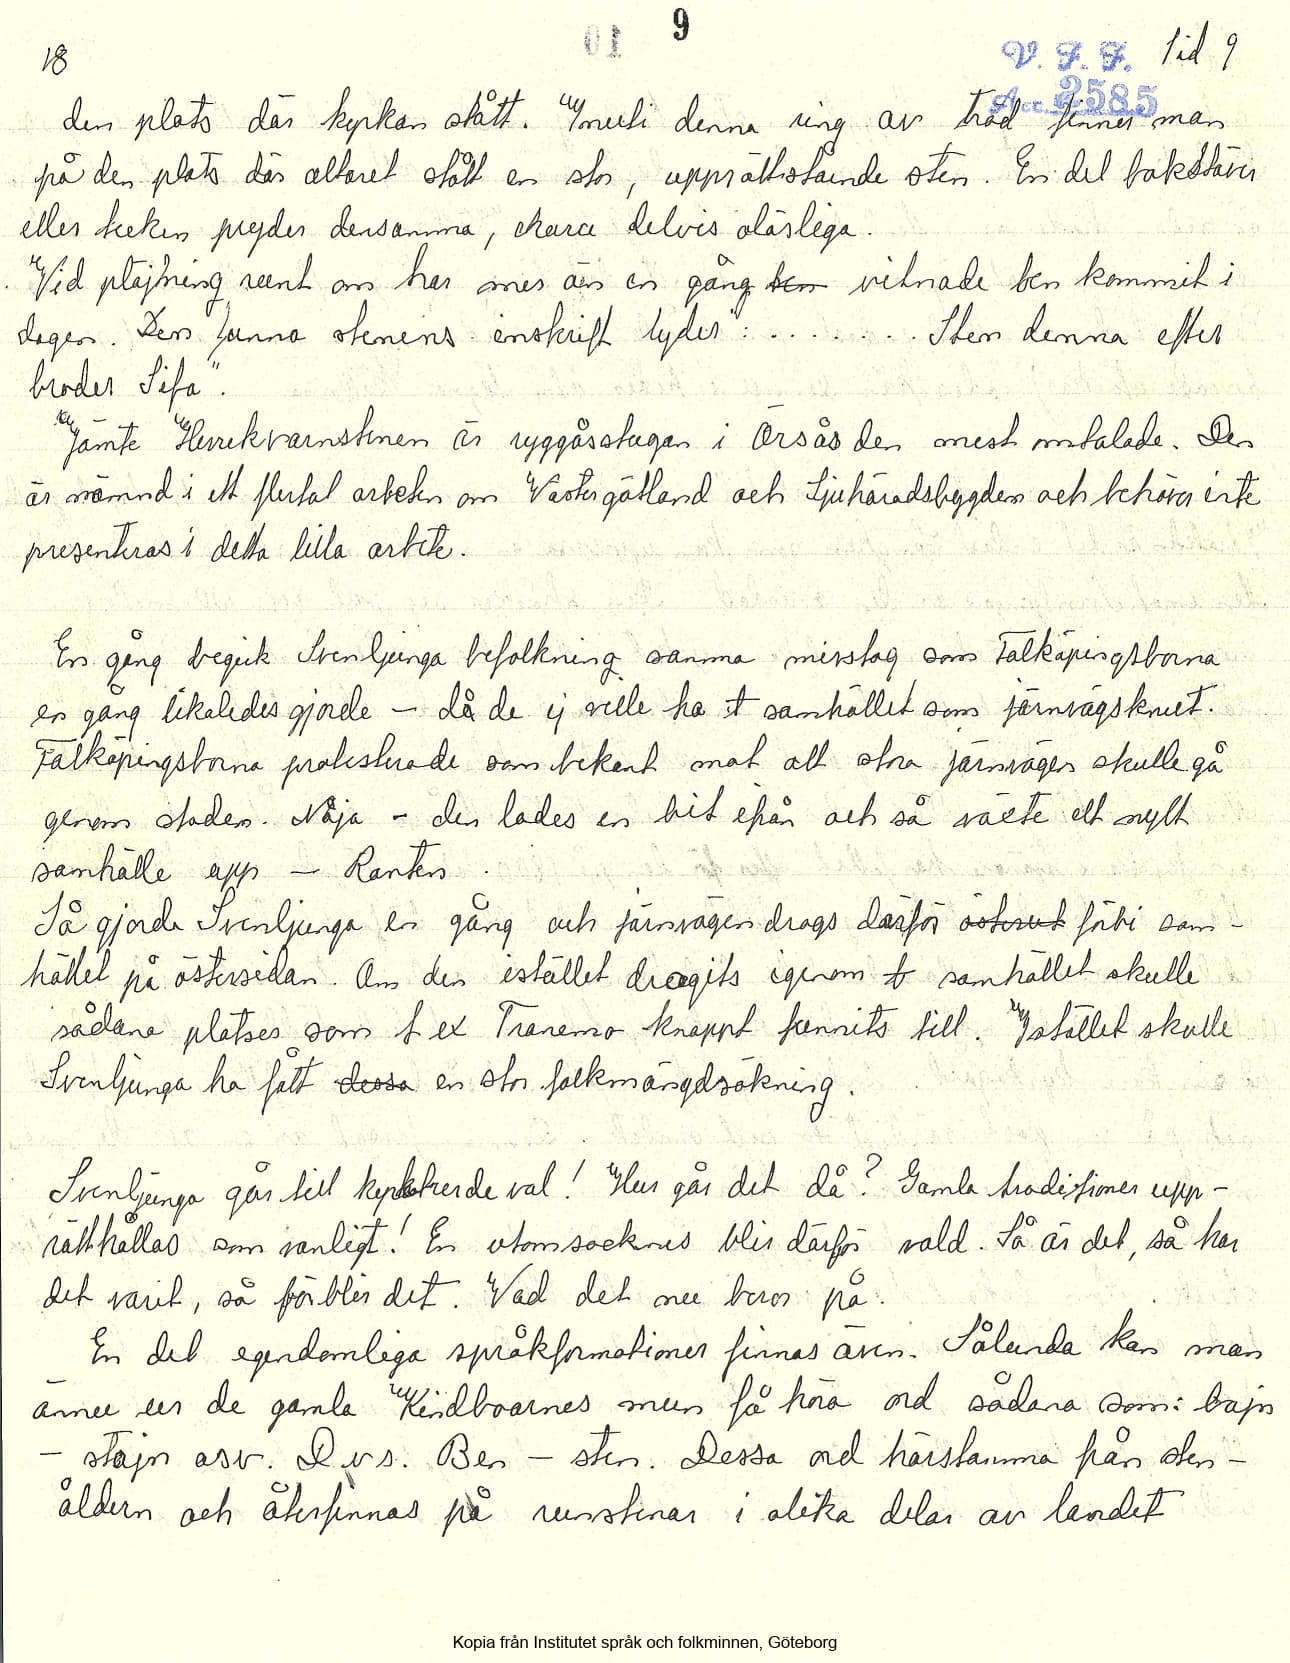 9
18
V. F. F. Sid 9
Acc. 2585
den plats där kyrkan stått. Inuti denna ring av träd finner man
på den plats där altaret stått en stor, upprättstående sten. En del bokstäver
eller tecken pryder densamma, ehuru delvis oläsliga.
Vid plöjning runt om har mer än en gång ben vitnade ben kommit i
dagen. Den funna stenens inskrift lyder": . . . . . . . . Sten denna efter
broder Sifa".
Jämte Hevrekvarnstenen är ryggåsstugan i Örsås den mest omtalade. Den
är nämnd i ett flertal arbeten om Västergötland och Sjuhäradsbygden och behöver inte
presenteras i detta lilla arbete.
En gång begick Svenljunga befolkning samma misstag som Falköpingsborna
en gång likaledes gjorde – då de ej ville ha samhället som järnvägsknut.
Falköpingsborna protesterade som bekant mot att stora järnvägen skulle gå
genom staden. Nåja – den lades en bit ifrån och så växte ett nytt
samhälle upp – Ranten.
Så gjorde Svenljunga en gång och järnvägen drogs därför österut förbi sam-
hället på östersidan. Om den istället dragits igenom samhället skulle
sådana platser som t ex Tranemo knappt funnits till. Istället skulle
Svenljunga ha fått dessa en stor folkmängdsökning.
Svenljunga går till kyrkoherdeval! Hur går det då? Gamla traditioner upp-
rätthållas som vanligt! En utomsocknes blir därför vald. Så är det, så har
det varit, så förblir det. Vad det nu beror på.
En del egendomliga språkformationer finnas även. Sålunda kan man
ännu ur de gamla Kindboarnes mun få höra ord sådana som: bajn
– stajn osv. D.v.s. Ben – sten. Dessa ord härstamma från sten-
åldern och återfinnas på runstenar i olika delar av landet
Kopia från Institutet språk och folkminnen, Göteborg